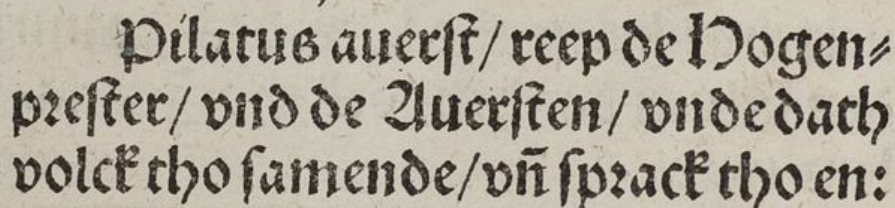 Pilatus auerſt/ reep de Hogen⸗
preſter/ vnd de Auerſten/ vnde dath
volck tho ſamende/vn̄ ſprack tho en: